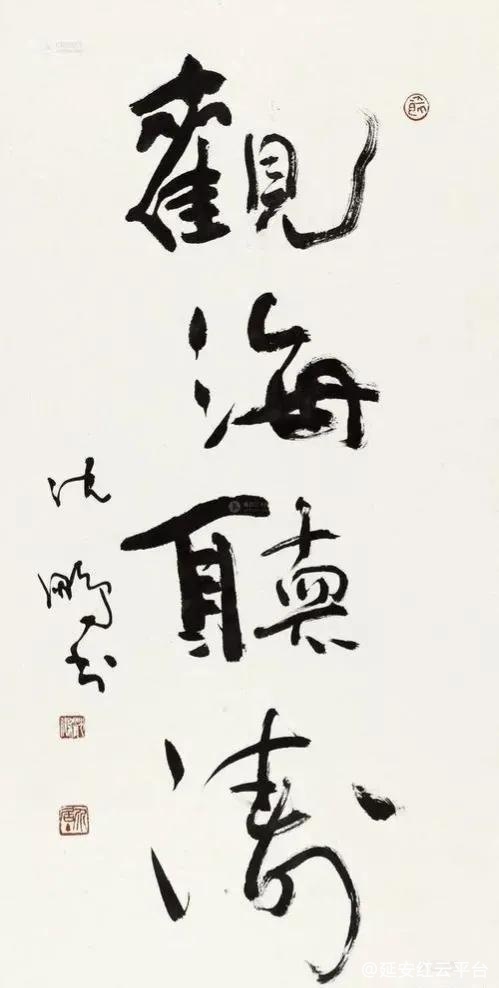 觀海聽濤
沈鵬书
@延安红云平台